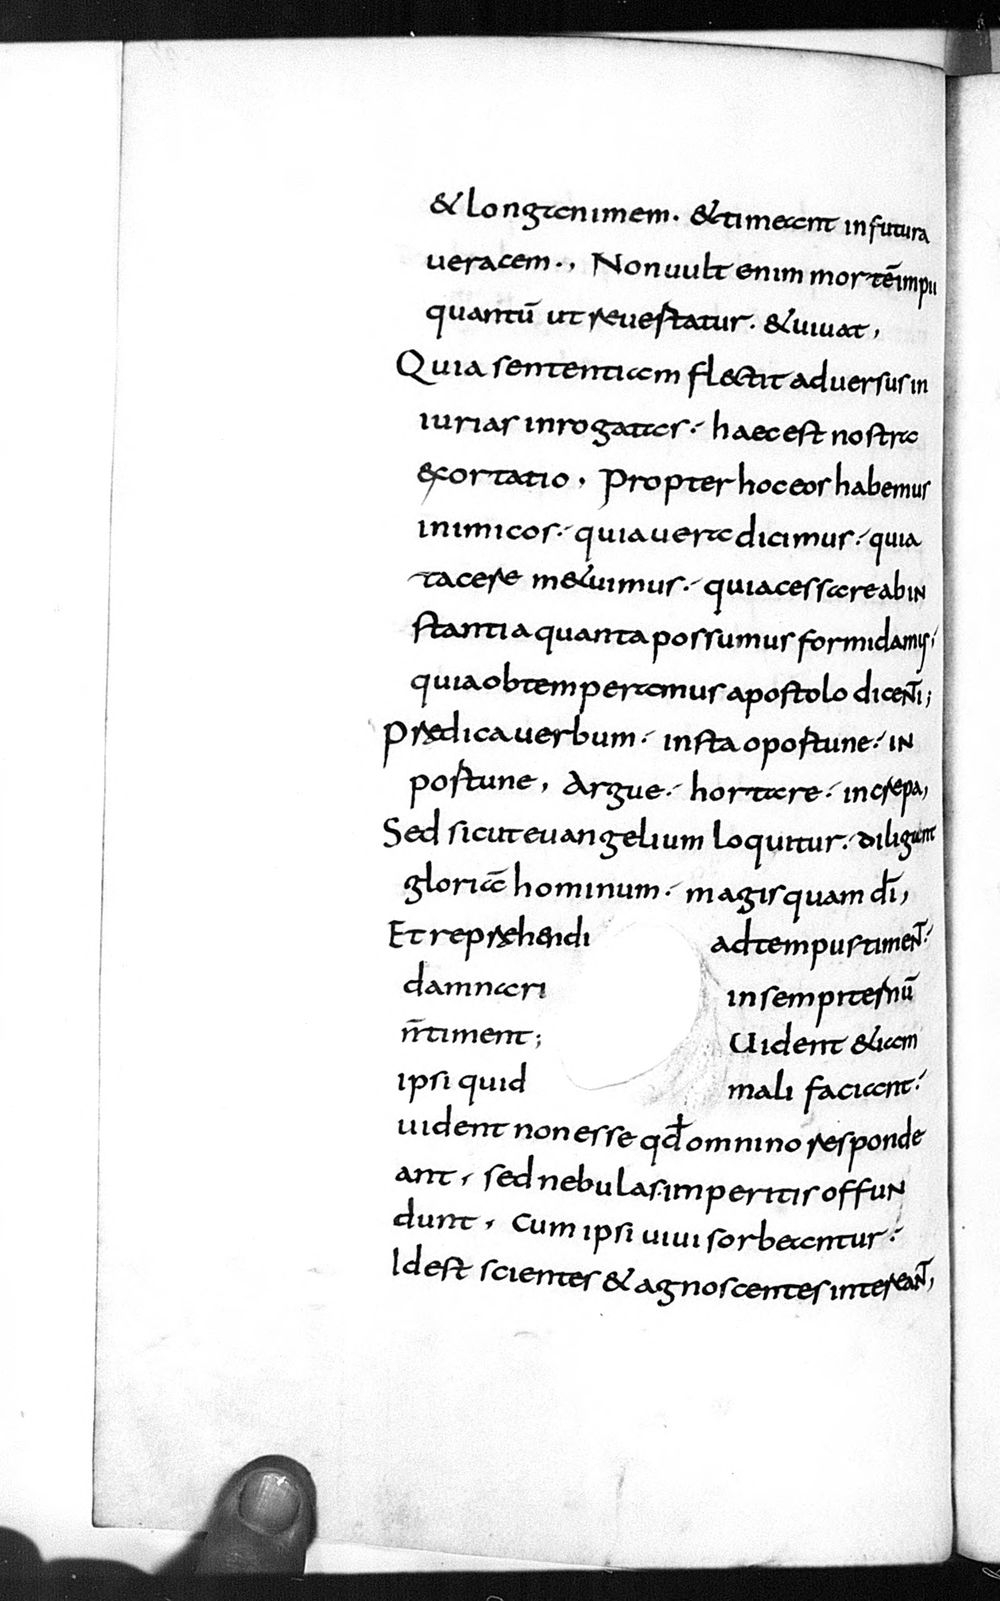 & longanimem. & timeant in futura
ueracem., Non uult enim mortē impii
quantū ut reuertatur. & uiuat,
Quia sententiam flectit aduersus in
iurias inrogatas: haec est nostra
exortatio, Propter hoc eos habemus
inimicos: quia uera dicimus: quia
tacere m&uimus: quia cessare ab in
stantia quanta possumus formidamus:
quia obtemperamus apostolo dicenti;
Predica uerbum: insta oportune: in
portune, Argue: hortare: increpa,
Sed sicut euangelium loquitur: diligunt
gloriā hominum: magis quam dī,
Et reprehendi ad tempus timent:
damnari in sempiternū
n̄ timent; Uident &iam
ipsi quid mali faciant:
uident non esse qđ omnino responde
ant, sed nebulas imperitis offun
dunt, cum ipsi uiui sorbeantur:
Id est scientes & agnoscentes intereant,